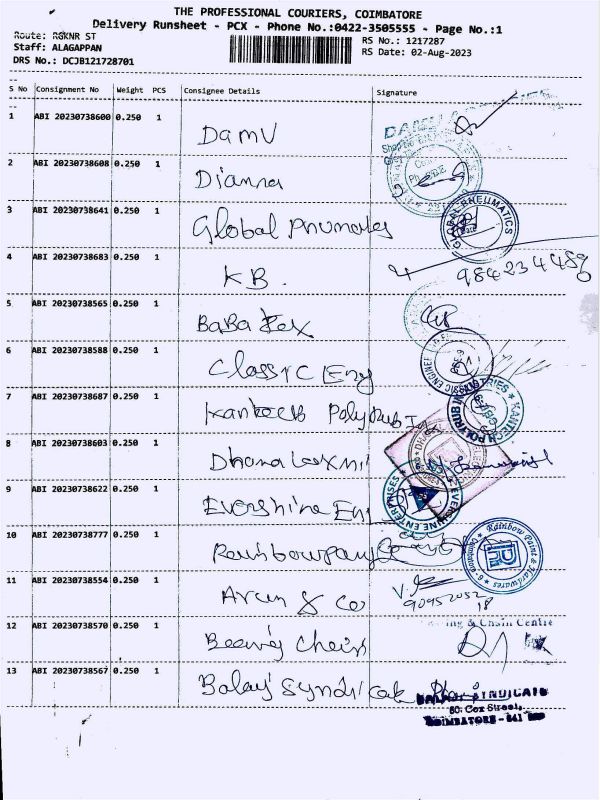 THE PROFESSIONAL COURIERS, COIMBATORE
Delivery Runsheet - PCX - Phone No.:0422-3505555 - Page No.:1
Route: RGKNR ST
RS No.: 1217287
Staff: ALAGAPPAN
RS Date: 02-Aug-2023
DRS No.: DCJB121728701
S No Consignment No Weight PCS Consignee Details Signature
1 ABI 20230738600 0.250 1 Damu
2 ABI 20230738608 0.250 1 Dianna
3 ABI 20230738641 0.250 1 Global Pnumates
GLOBAL PNEUMATICS
4 ABI 20230738683 0.250 1 KB. 9842344489
5 ABI 20230738565 0.250 1 BaBa Tex
6 ABI 20230738588 0.250 1 Classic Eng
7 ABI 20230738687 0.250 1 Kanteeb Polyrub
KANTECH POLYRUB INDUSTRIES
8 ABI 20230738603 0.250 1 Dhana laxmi
9 ABI 20230738622 0.250 1 Evershine En
EVERSHINE ENTERPRISES
10 ABI 20230738777 0.250 1 Rainbowpany
Rainbow Paint & Hardwares
11 ABI 20230738554 0.250 1 Arun & Co
12 ABI 20230738570 0.250 1 Bearing Chain
& Chain Centre
13 ABI 20230738567 0.250 1 Balaji Syndicate
SYNDICATE
80, Cox Street,
COIMBATORE - 641